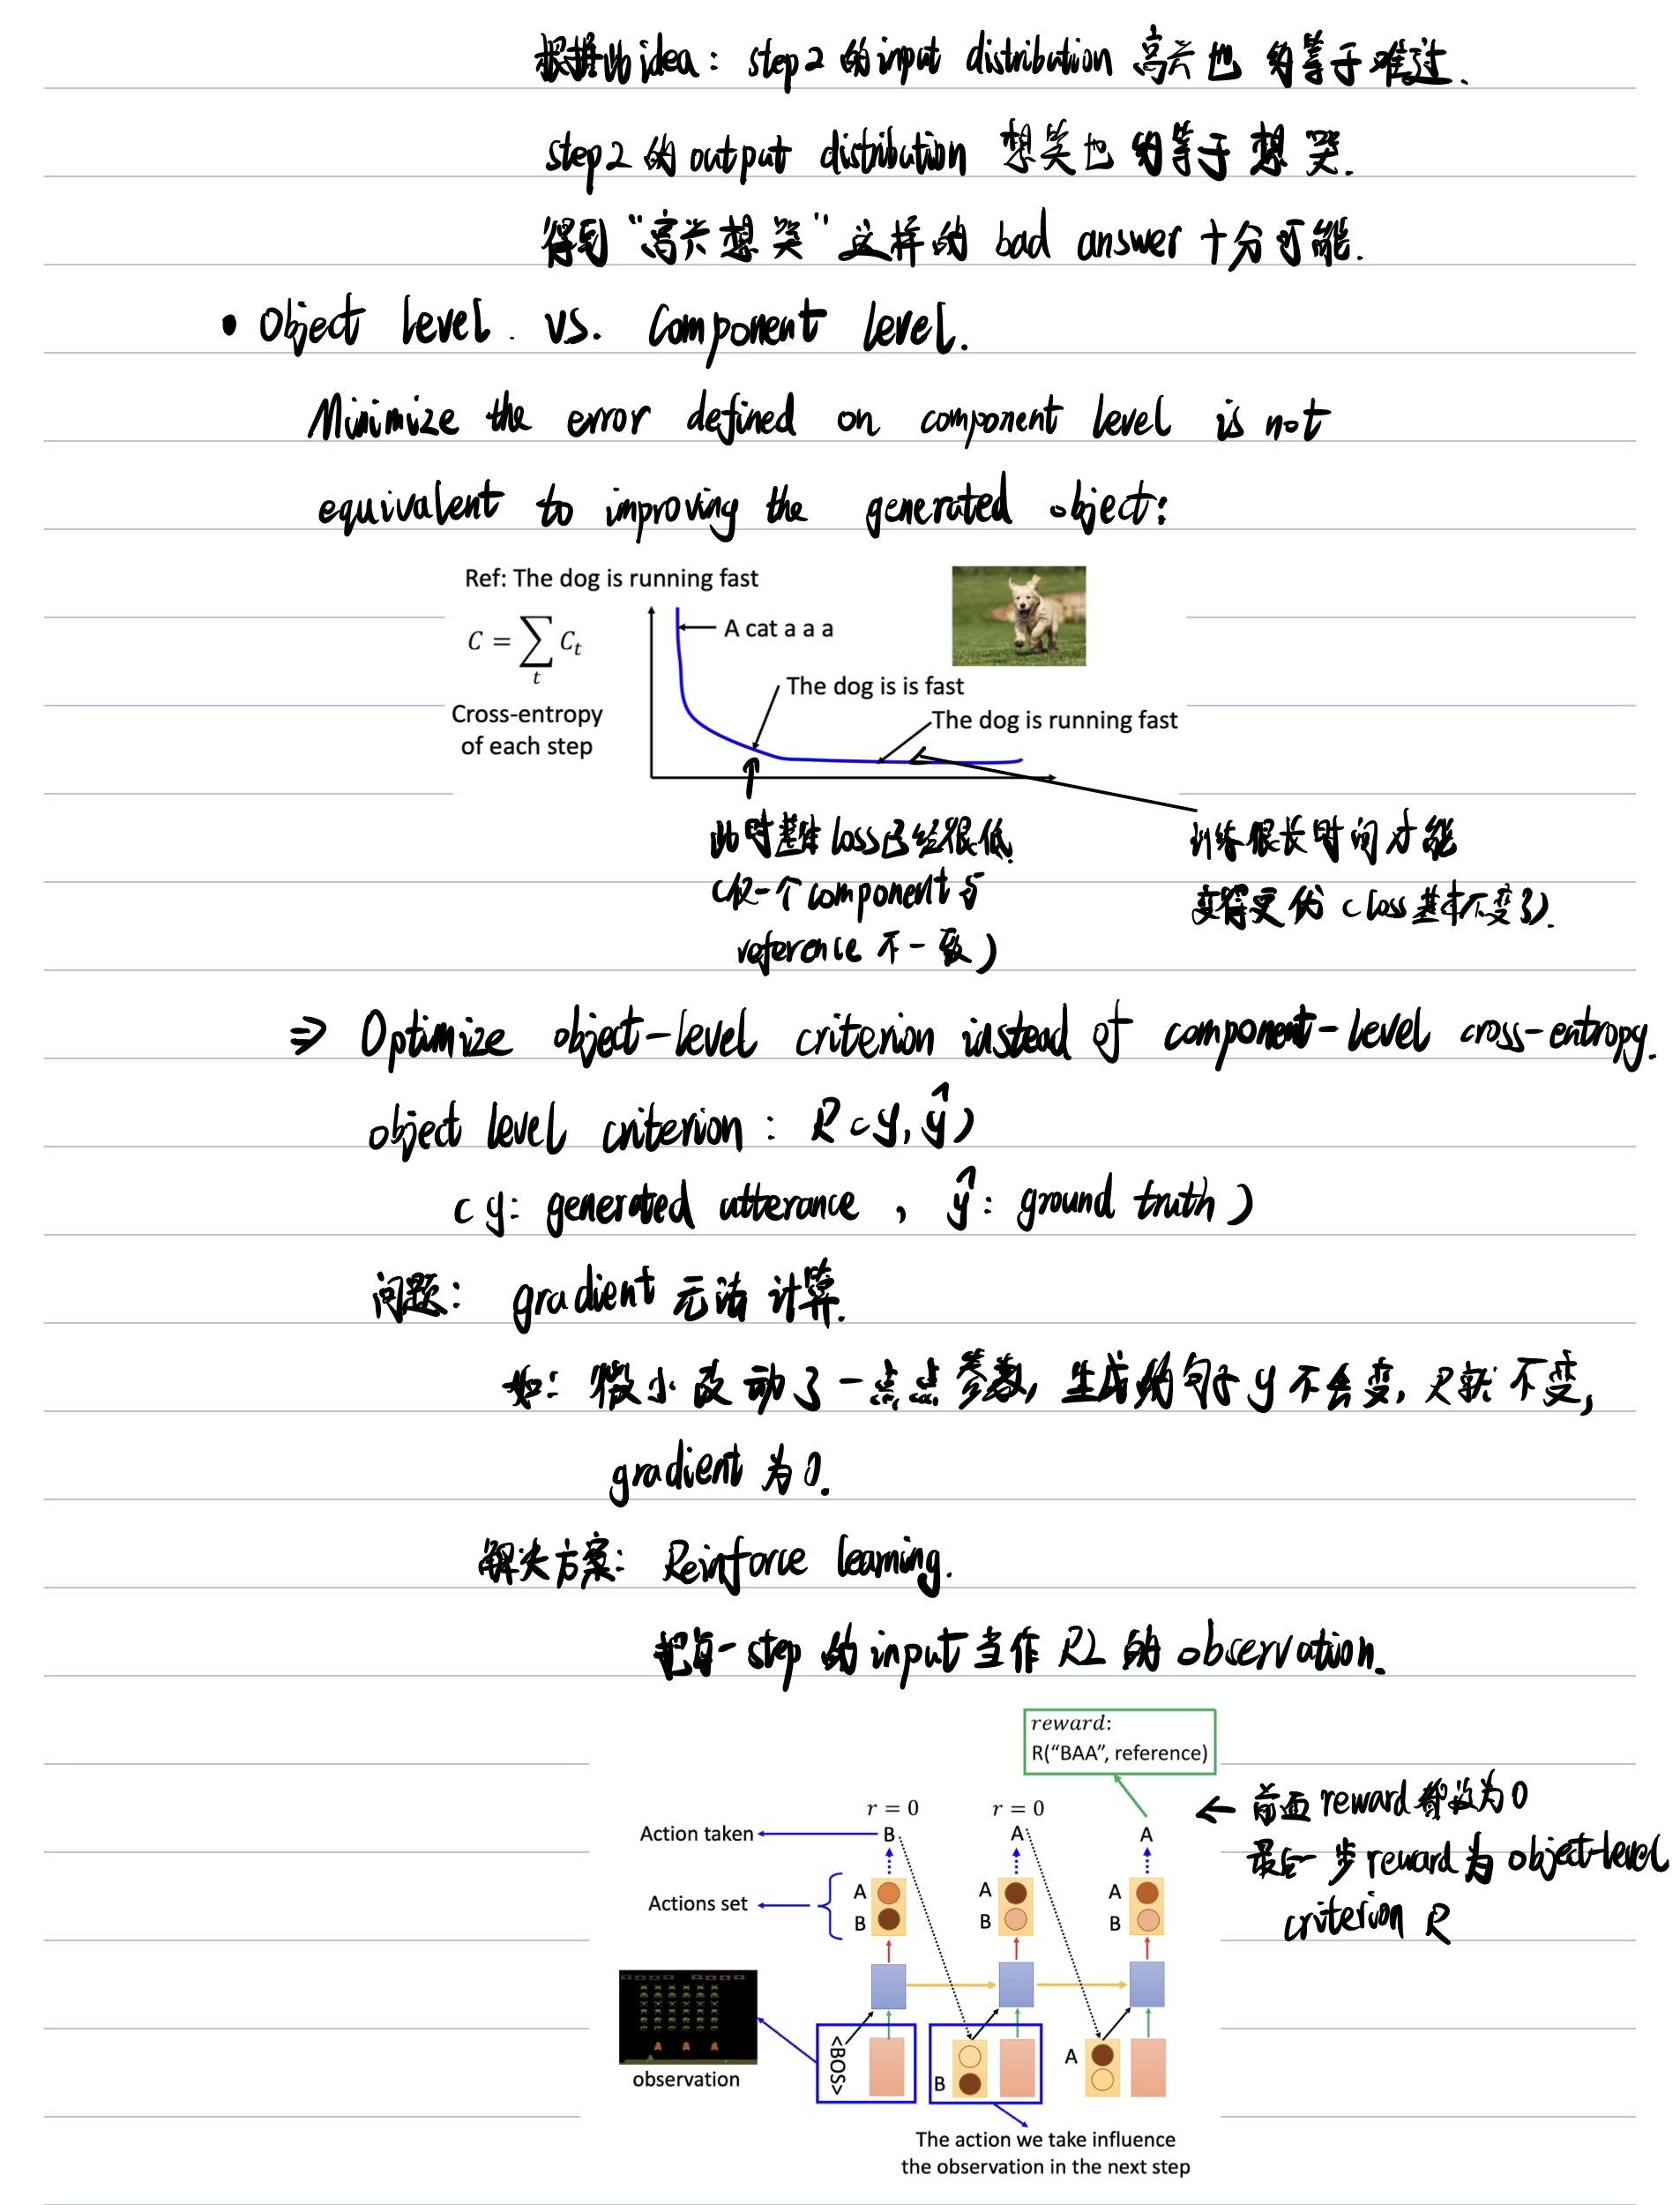 根据此idea: step2的input distribution 高兴也约等于难过.
step2的output distribution 想笑也约等于想哭.
得到“高兴想哭”这样的 bad answer 十分可能.
• Object level. vs. Component level.
Minimize the error defined on component level is not
equivalent to improving the generated object:
Ref: The dog is running fast
A cat a a a
C = ∑_t C_t
The dog is is fast
Cross-entropy
of each step
The dog is running fast
此时整体loss已经很低.
(仅一个component与
reference不一致)
训练很长时间才能
变得更优 (loss基本不变了).
⇒ Optimize object-level criterion instead of component-level cross-entropy.
object level criterion: R(y, ŷ)
(y: generated utterance, ŷ: ground truth)
问题: gradient无法计算.
如: 微小改动了一点点参数, 生成的句子y不会变, R就不变,
gradient为0.
解决方案: Reinforce learning.
把每一step的input当作RL的observation.
reward:
R(“BAA”, reference)
← 前面reward都设为0
最后一步reward为object-level
criterion R
r = 0
r = 0
Action taken
B
A
A
Actions set
A
B
A
B
A
B
<BOS>
B
A
observation
The action we take influence
the observation in the next step